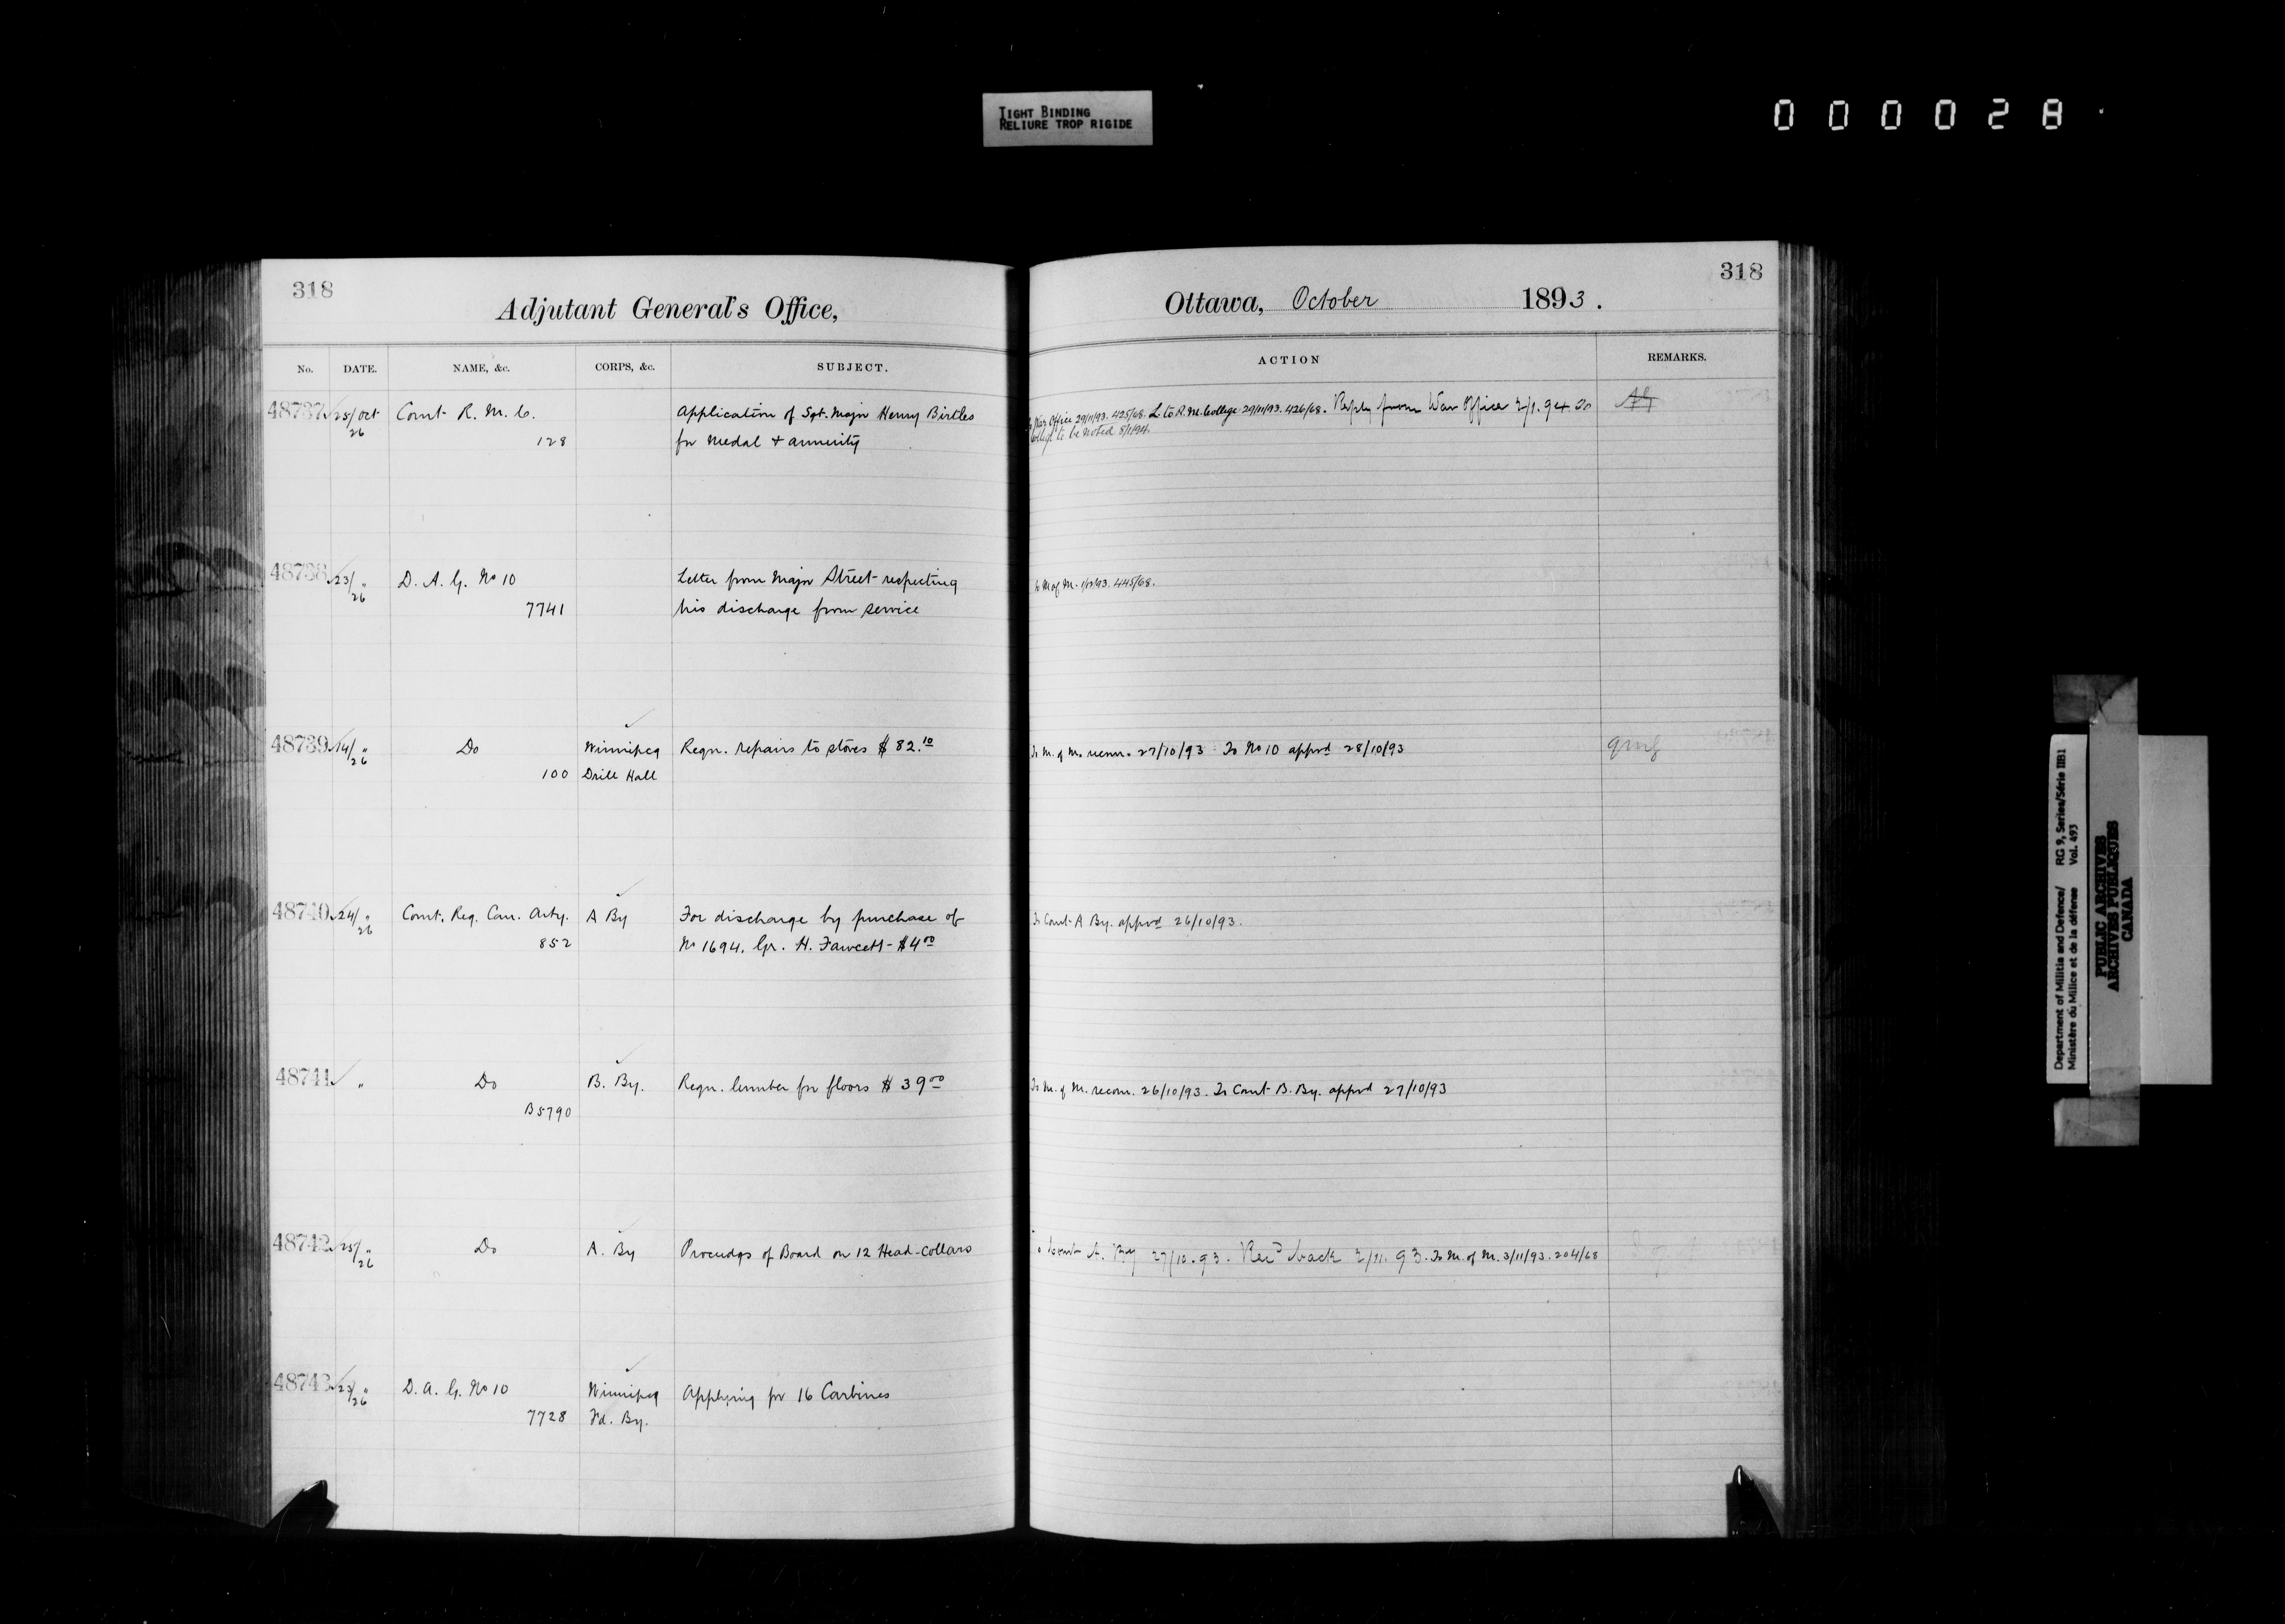 TIGHT BINDING
RELIURE TROP RIGIDE
000028
318
Adjutant General's Office,
No. DATE. NAME, &c. CORPS, &c. SUBJECT.
48737 25/Oct Comt R. M. C. Application of Sgt. Major Henry Birtles
26 128 for medal & annuity
48738 23/ " D. A. G. No 10 Letter from Major Street respecting
26 7741 his discharge from service
48739 14/ " Do Winnipeg Reqn. repairs to stoves $ 82.10
26 100 Drill Hall
48740 24/ " Comt. Reg. Can. Arty. A By For discharge by purchase of
26 852 No 1694. Gr. H. Fawcett - $4 00
48741 " Do B. By. Reqn. lumber for floors $ 39 00
B5790
48742 25/ " Do A. By Proceedgs of Board on 12 Head-collars
26
48743 23/ " D. A. G. No 10 Winnipeg Applying for 16 Carbines
26 7728 Fd. By.
318
Ottawa, October 1893.
ACTION REMARKS.
War Office 29/11/93. 425/68. L to R. M. College 29/11/93. 426/68. Reply from War Office 2/1.94 To
College to be noted 8/1/94.
to M of M. 1/12/93. 445/68.
To M. of M. recom. 27/10/93 To No 10 appvd 28/10/93 qmg
To Comt A By. appvd 26/10/93.
To M. of M. recom. 26/10/93. To Comt B. By. appvd 27/10/93
To Comt A. By 27/10.93. Recd back 2/11.93. To M. of M. 3/11/93. 204/68
Department of Militia and Defence/ RG 9, Series/Série IIB1
Ministère du Milice et de la défense Vol. 493
PUBLIC ARCHIVES
ARCHIVES PUBLIQUES
CANADA